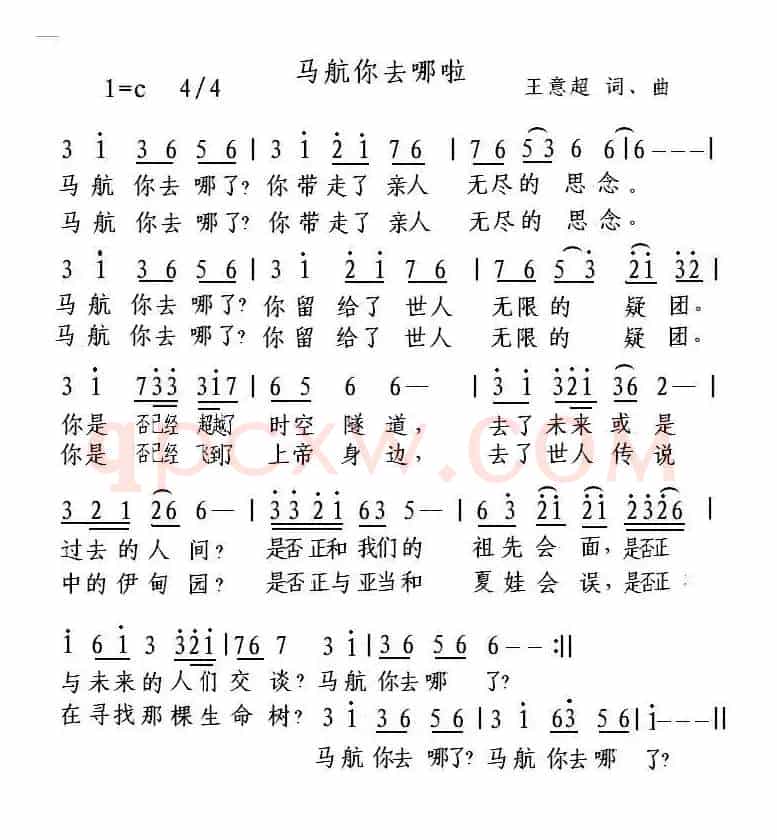 马航你去哪啦
1=c 4/4 王意超 词、曲
3 i 3 6 5 6 | 3 i 2 i 7 6 | 7 6 5 3 6 6 | 6 - - - |
马航 你去 哪了? 你带走了 亲人 无尽的 思念。
马航 你去 哪了? 你带走了 亲人 无尽的 思念。
3 i 3 6 5 6 | 3 i 2 i 7 6 | 7 6 5 3 2 i 3 2 |
马航 你去 哪了? 你留 给了 世人 无限的 疑团。
马航 你去 哪了? 你留 给了 世人 无限的 疑团。
3 i 7 3 3 3 i 7 | 6 5 6 6 - | 3 i 3 2 i 3 6 2 - |
你是 否已经 超越了 时空 隧道, 去了未来或是
你是 否已经 飞到了 上帝 身边, 去了世人传说
qpcxw.com
3 2 1 2 6 6 - | 3 3 2 i 6 3 5 - | 6 3 2 i 2 i 2 3 2 6 |
过去的人 间? 是否正和我们的 祖先会 面,是否正
中的伊甸 园? 是否正与亚当和 夏娃会 误,是否正
i 6 i 3 3 2 i | 7 6 7 3 i | 3 6 5 6 6 - - :||
与未来的人们 交 谈? 马航 你去哪 了?
在寻找那棵生命 树?
3 i 3 6 5 6 | 3 i 6 3 5 6 | i - - ||
马航 你去 哪了? 马航 你去哪 了?